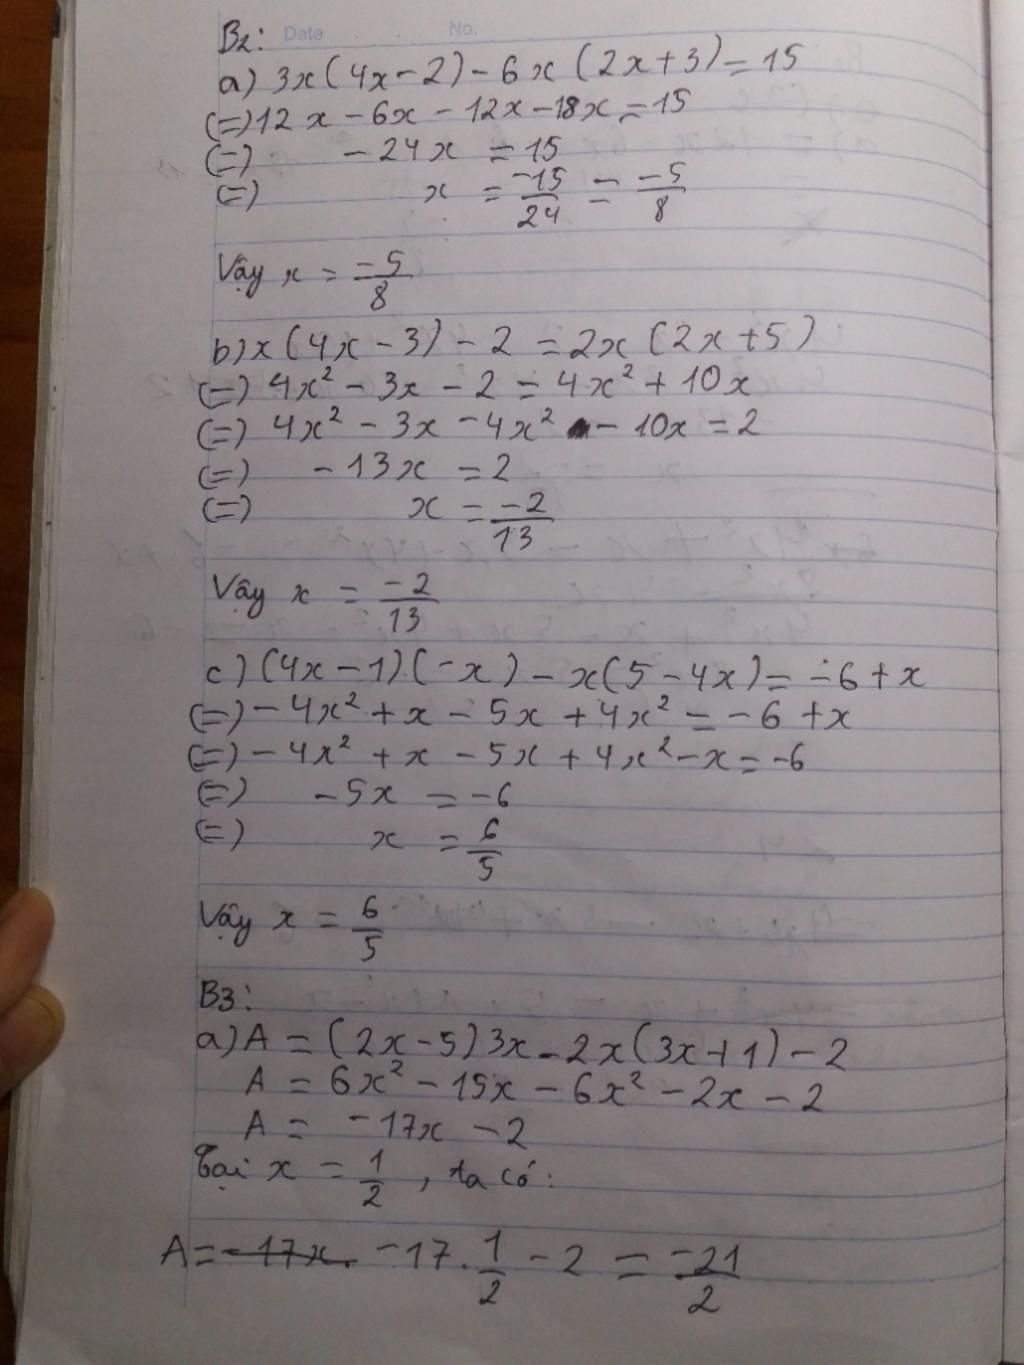 Date No.
B2:
a) 3x(4x-2)-6x(2x+3)=15
(=)12x-6x-12x-18x=15
(=) -24x = 15
(=) x = -15/24 = -5/8
Vậy x = -5/8
b) x(4x-3)-2=2x(2x+5)
(=) 4x²-3x-2=4x²+10x
(=) 4x²-3x-4x²-10x=2
(=) -13x = 2
(=) x = -2/13
Vậy x = -2/13
c) (4x-1).(-x)-x(5-4x)=-6+x
(=)-4x²+x-5x+4x²=-6+x
(=)-4x²+x-5x+4x²-x=-6
(=) -5x = -6
(=) x = 6/5
Vậy x = 6/5
B3:
a) A = (2x-5)3x-2x(3x+1)-2
A = 6x²-15x-6x²-2x-2
A = -17x-2
Tại x = 1/2, ta có:
A = -17x. -17.1/2-2 = -21/2